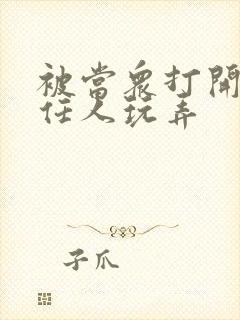 被當眾打開
任人玩弄
子爪